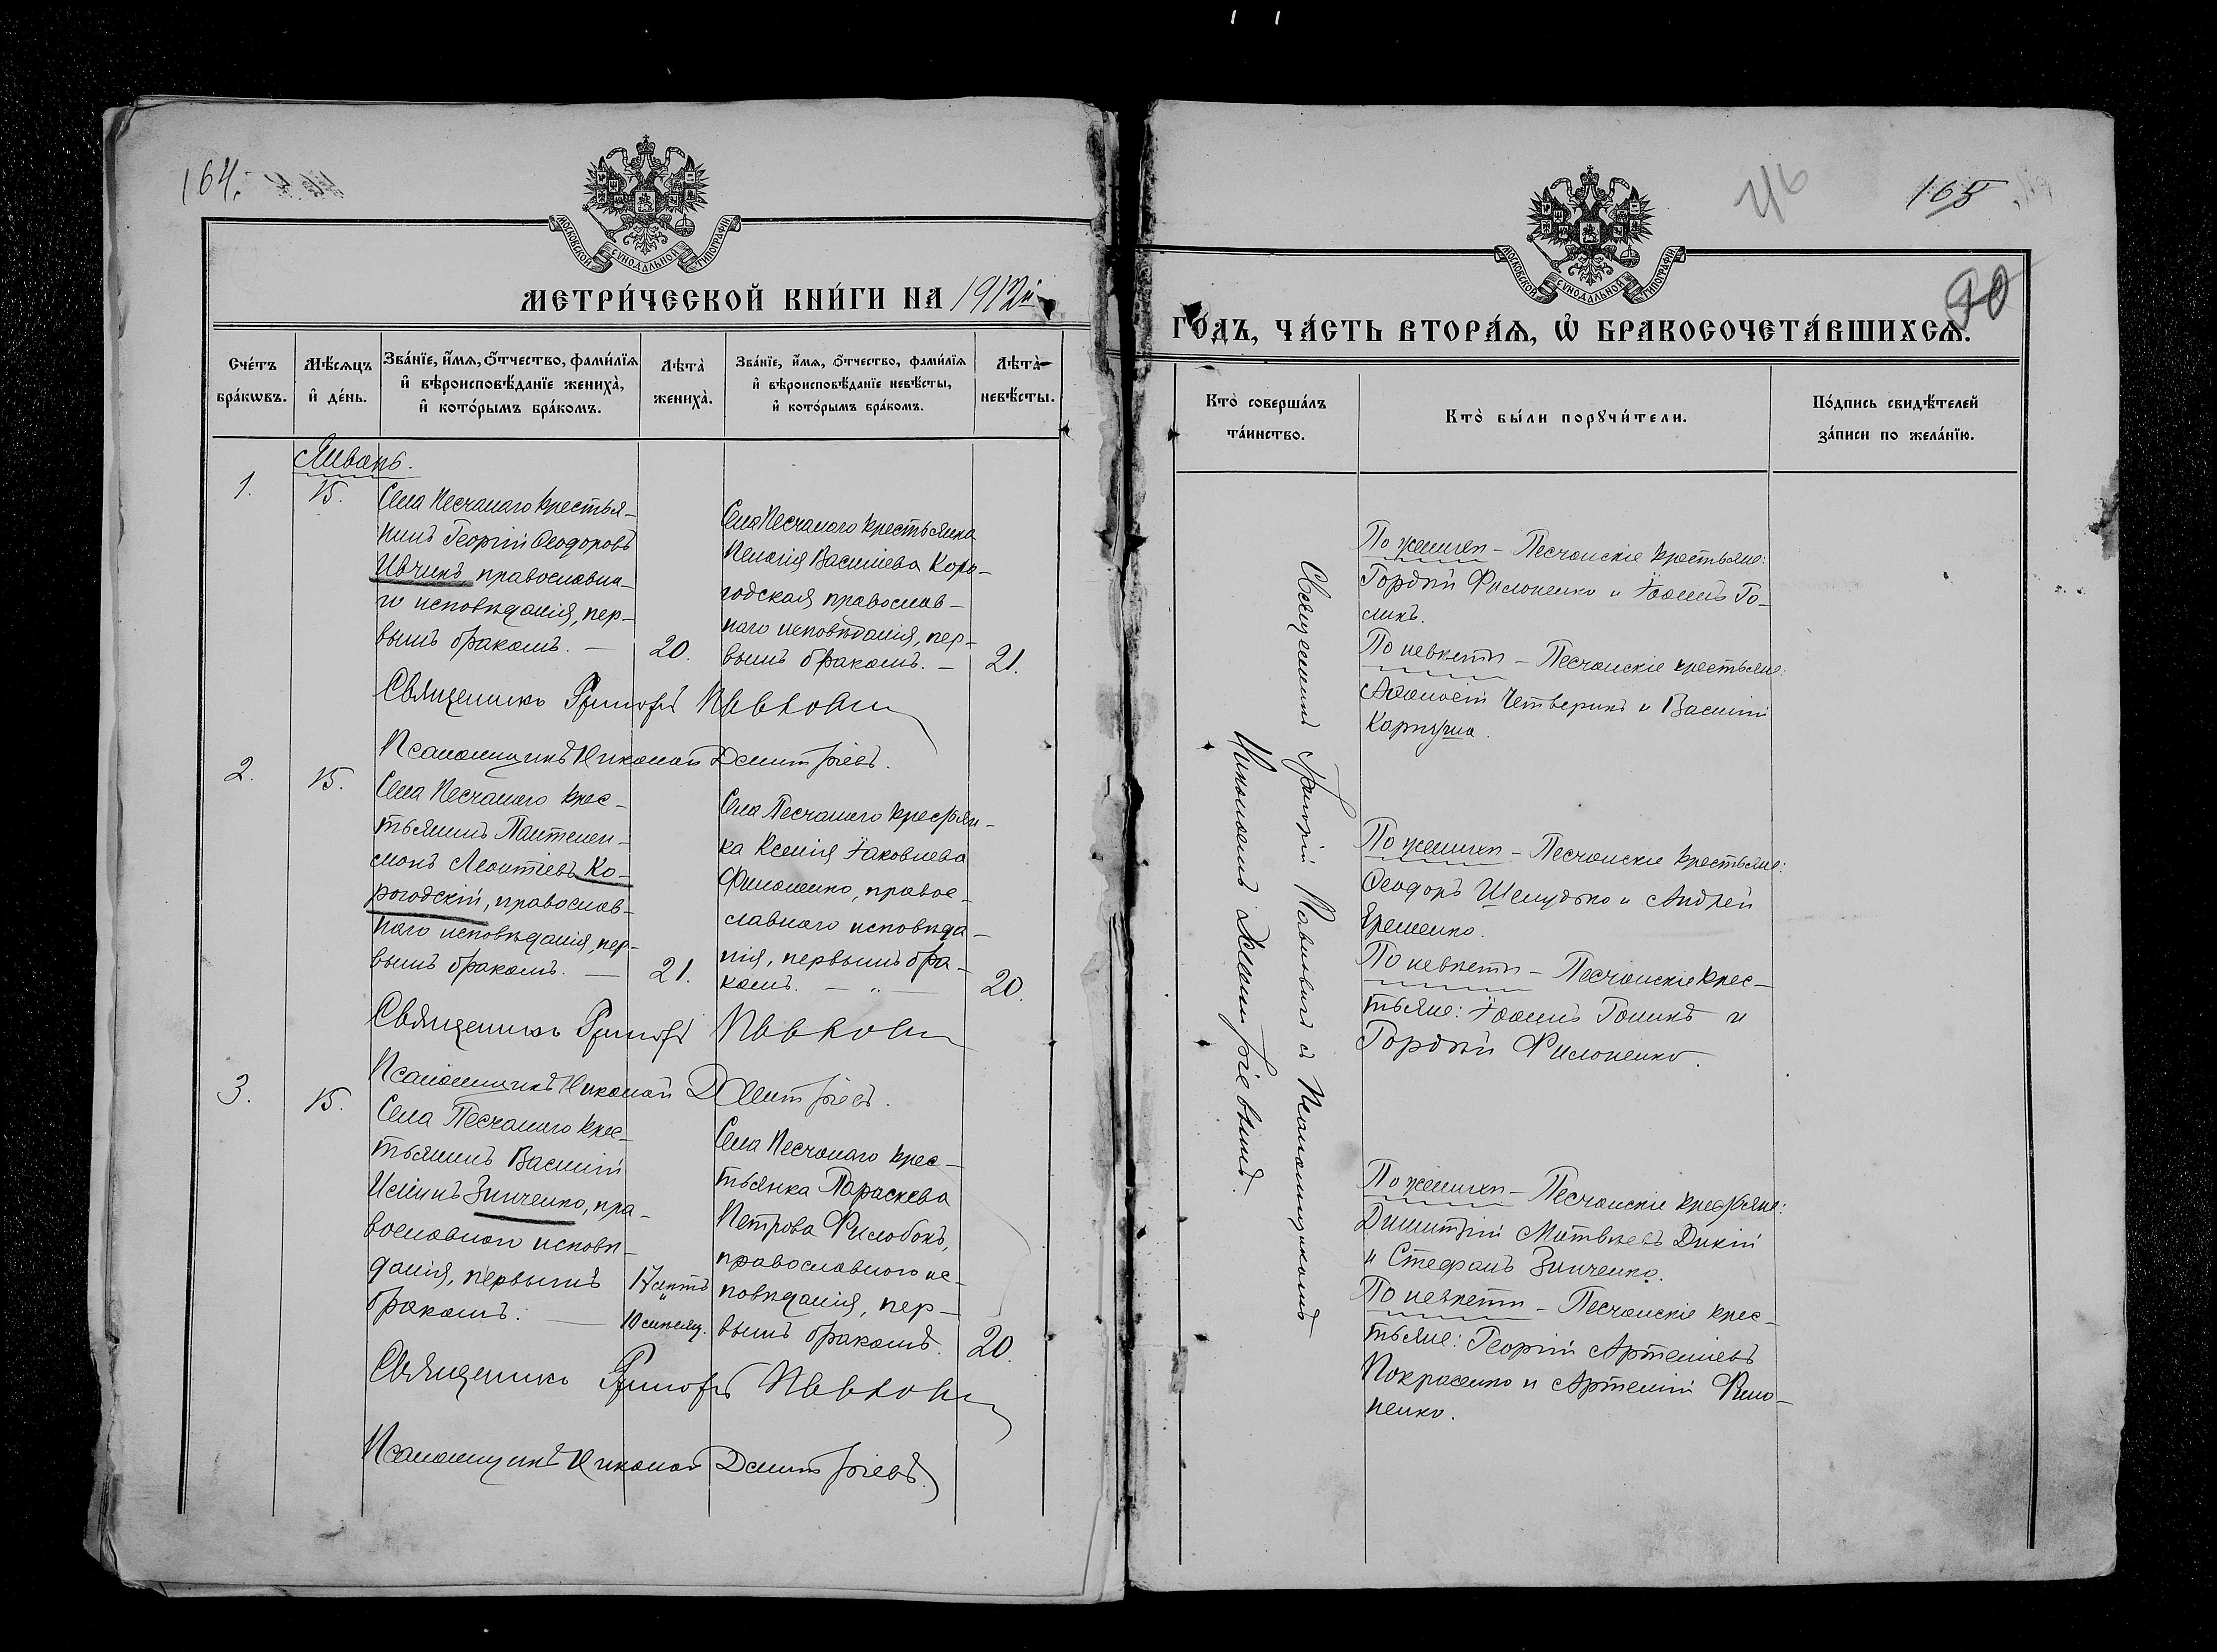 164.
МОСКОВСКОЙ СѴНОДАЛЬНОЙ ТИПОГРАФІИ
МЕТРИ́ЧЕСКОЙ КНИ́ГИ НА 1912й
Сче́тъ бра́кѡвъ.
Мѣ́сѧцъ и҆ де́нь.
Зва́нїе, и҆́мѧ, ѻ҆́тчество, фами́лїѧ и҆ вѣроисповѣ́данїе жениха̀, и҆ кото́рымъ бра́комъ.
Лѣта̀ жениха̀.
Зва́нїе, и҆́мѧ, ѻ҆́тчество, фами́лїѧ и҆ вѣроисповѣ́данїе невѣ́сты, и҆ кото́рымъ бра́комъ.
Лѣта̀ невѣ́сты.
Январь.
1.
15.
Села Песчанаго крестья-
нинъ Георгій Ѳеодоровъ
Ивчикъ, православна-
го исповѣданія, пер-
вымъ бракомъ. —
20.
Села Песчанаго крестьянка
Пелагія Васильева Коро-
годская православ-
наго исповѣданія, пер-
вымъ бракомъ. —
21.
Священникъ Григорій
Псаломщикъ Николай Димитріевъ.
2.
15.
Села Песчанаго крес-
тьянинъ Пантелеи-
монъ Леонтіевъ Ко-
рогодскій, православ-
наго исповѣданія, пер-
вымъ бракомъ. —
21.
Села Песчанаго крестьян-
ка Ксенія Іаковлева
Филоненко, право-
славнаго исповѣда-
нія, первымъ бра-
комъ. — „ —
20.
Священникъ Григорій
Псаломщикъ Николай Димитріевъ.
3.
15.
Села Песчанаго крес-
тьянинъ Василій
Зинченко, пра-
вославнаго исповѣ-
данія, первымъ
бракомъ. —
17 лѣтъ
и
10 мѣсяц.
Села Песчанаго крес-
тьянка Параскева
Петрова Филобокъ,
православнаго ис-
повѣданія, пер-
вымъ бракомъ.
20.
Священникъ Григорій
Псаломщикъ Николай Димитріевъ.
165
90
МОСКОВСКОЙ СѴНОДАЛЬНОЙ ТИПОГРАФІИ
ГО́ДЪ, ЧА́СТЬ ВТОРА́Ѧ, Ѡ҆ БРАКОСОЧЕТА́ВШИХСѦ.
Кто̀ соверша́лъ та́инство.
Кто̀ бы́ли порꙋчи́тели.
По́дпись свидѣ́телей за́писи по жела́нїю.
Священникъ Григорій съ Псаломщикомъ
Николаемъ Димитріевымъ.
По женихѣ — Песчанскіе крестьяне:
Гордѣй Филоненко и Іоаннъ Го-
ликъ.
По невѣстѣ — Песчанскіе крестьяне:
Аѳанасій Четверикъ и Василій
По женихѣ — Песчанскіе крестьяне:
Ѳеодоръ Шелудько и Андрей
Яременко.
По невѣстѣ — Песчанскіе крес-
тьяне: Іоаннъ Голикъ и
Гордѣй Филоненко.
По женихѣ — Песчанскіе крестьяне:
Димитрій Матвѣевъ Дикій
и Стефанъ Зинченко.
По невѣстѣ — Песчанскіе крес-
тьяне: Георгій Артеміевъ
Покрасенко и Артемій Фило-
ненко.